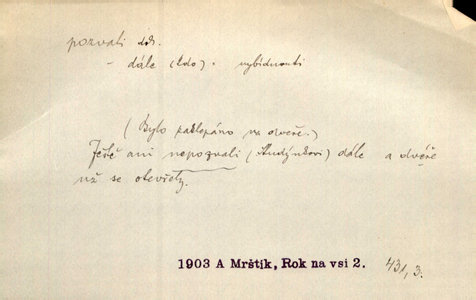 pozvati dok.
- dále (kdo). vybídnouti
(Bylo zaklepáno na dveře.)
Ještě ani nepozvali (Studýnkovi) dále a dvéře
už se otevřely.
1903 A Mrštík, Rok na vsi 2. 431, 3.